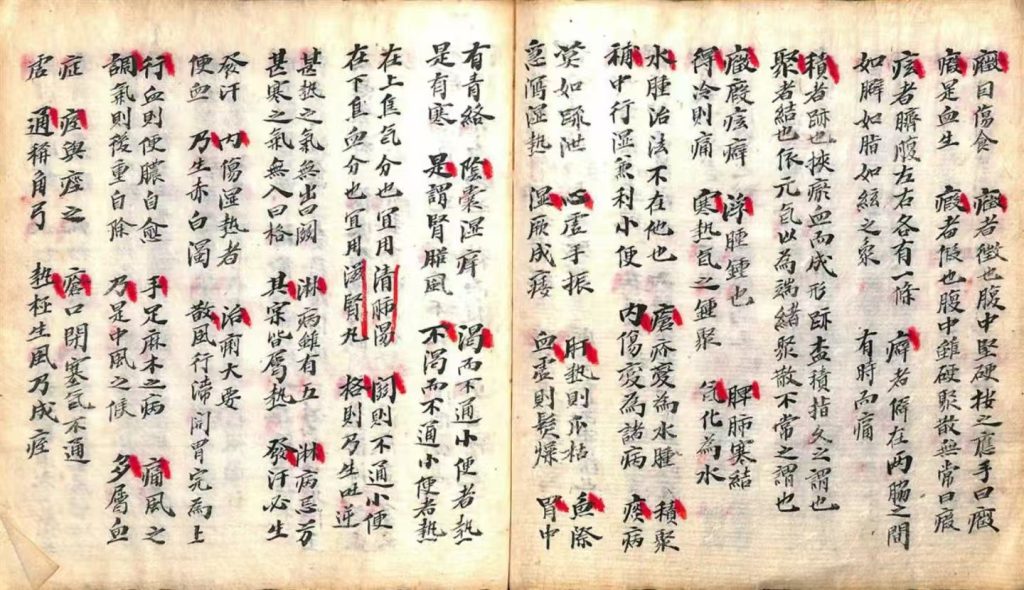 癥曰傷食 癥者徵也腹中堅硬按之應手曰癥
瘕是血生 瘕者假也腹中雖硬聚散無常曰瘕
痃者臍腹左右各有一條 癖者僻在兩脇之間
如臂如脂如絃之象 有時而痛
積者跡也挾瘀血而成形跡盃積指久之謂也
聚者結也依元氣以為端緒聚散不常之謂也
癥瘕痃癖 浮腫鍾也 脾肺寒結
得冷則痛 寒熱氣之鍾聚 氣化為水
水腫治法不在他也 瘧疥変為水腫 積聚
補中行湿兼利小便 內傷変為諸病 痰病
如疎泄 心虛手振 肝熱則爪枯 魚際
瀉湿熱 湿厥成痿 血虛則髮燥 胃中
有青絡 陰囊湿痒 渴而不通小便者熱
是有寒 是謂腎臟風 不渴而不通小便者熱
在上焦气分也宜用清肺湯 関則不通小便
在下焦血分也宜用滋腎丸 格則乃生吐逆
甚熱之气無出曰関 淋病雖有五 淋病忌
甚寒之氣無入曰格 其宗皆屬熱 發汗必生
發汗 內傷湿熱者 治痢大要
便血 乃生赤白濁 散風行滯開胃完為上
行血則便膿自愈 手足麻木之病 痛風之
調氣則後重自除 乃是中風之候 多屬血
症 痙與痓之 瘡口閉塞气不通
虛 通稱角弓 熱極生風乃成痙